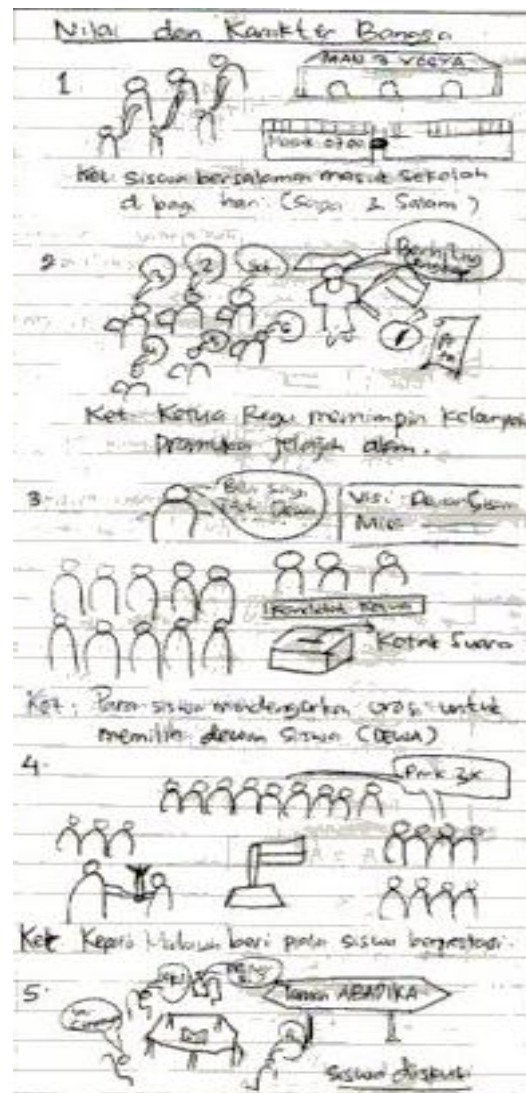 Nilai dan Karakter Bangsa
1
MAN 3 YOGYA
Masuk 07.00
Ket: Siswa bersalaman masuk sekolah
di pagi hari (Sapa & Salam)
2
1 2
4 5 6
Berhitung
Ket: Ketua Regu memimpin kelompok
Pramuka jelajah alam.
3
Visi: Dewan Siswa
Misi:
Kandidat Ketua
Kotak Suara
Ket: Para siswa mendengarkan orasi untuk
memilih dewan siswa (DEWA)
4.
Prok 3x
Ket Kepala beri siswa berprestasi.
5.
Taman ABADIKA
Siswa diskusi